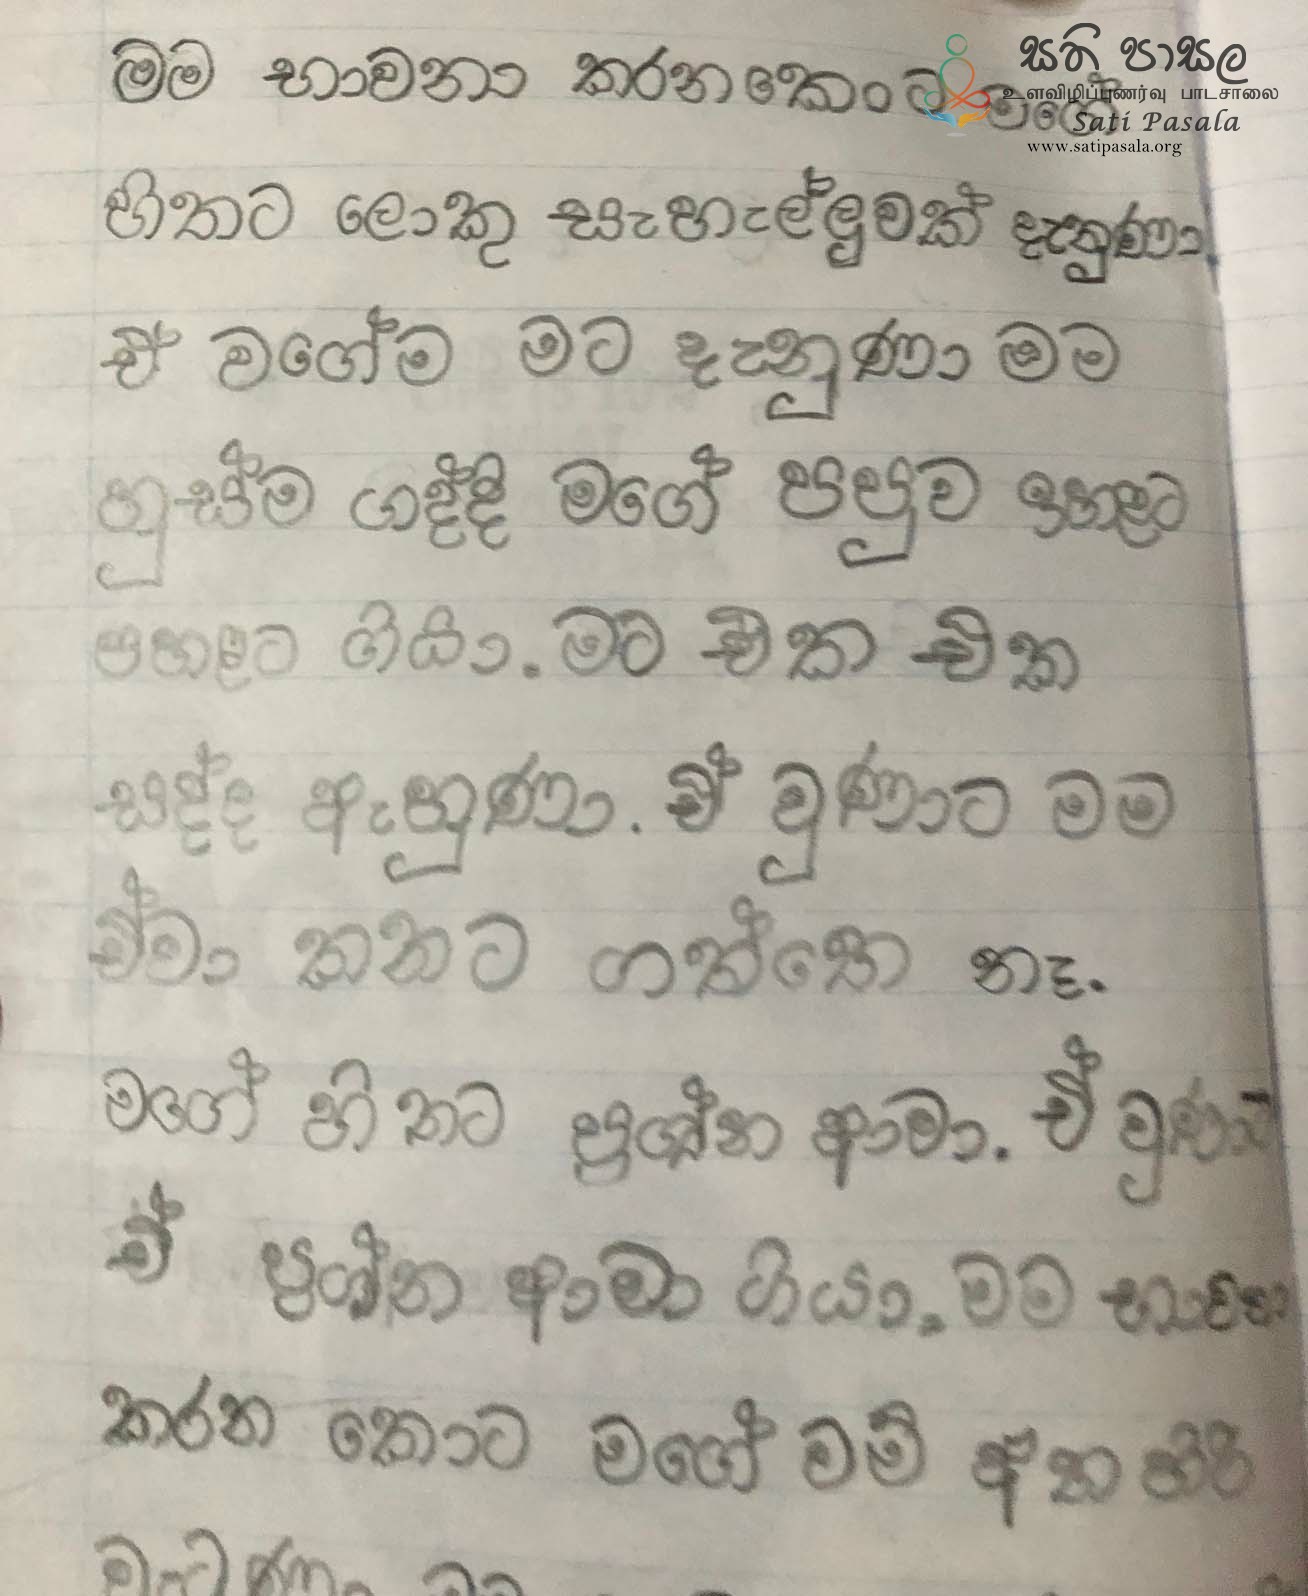 සති පාසල
உளவிழிப்புணர்வு பாடசாலை
Sati Pasala
www.satipasala.org
මම භාවනා කරන කොට මගේ
හිතට ලොකු සැහැල්ලුවක් දැනුණා
ඒ වගේම මට දැනුණා මම
හුස්ම ගද්දි මගේ පපුව ඉහළට
පහළට ගියා. මට එක එක
සද්ද ඇහුණා. ඒ වුණාට මම
ඒවා කනට ගත්තෙ නෑ.
මගේ හිතට ප්‍රශ්න ආවා. ඒ වුණාට
ඒ ප්‍රශ්න ආවා ගියා. මම භාවනා
කරන කොට මගේ වම් අත හිරි
මම